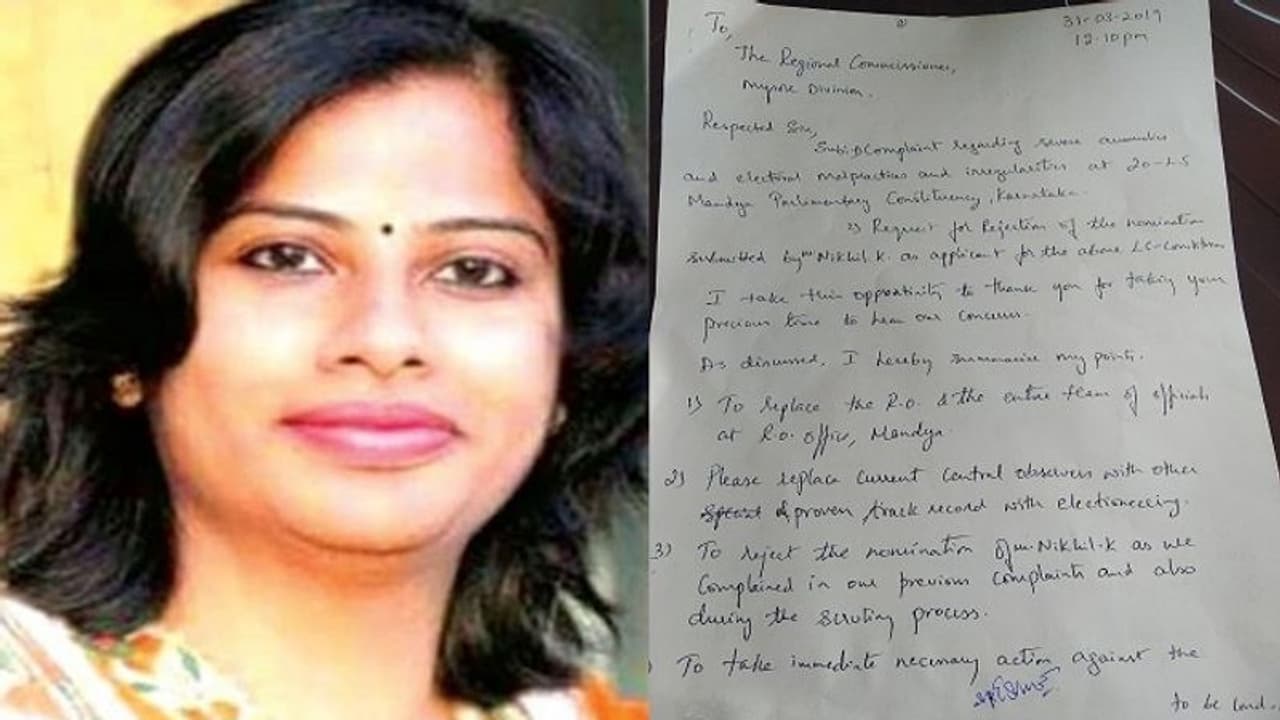 To,
31-03-2019
12.10pm
The Regional Commissioner,
Mysore Division.
Respected Sir,
Sub:1) Complaint regarding severe anomalies
and electoral malpractices and irregularities at 20-LS
Mandya Parlimentary Constituency, Karnataka.
2) Request for Rejection of the nomination
submitted by Mr Nikhil.K. as applicant for the above LC-
I take this opportunity to thank you for taking your
precious time to hear our concerns.
As discussed, I hereby summarise my points.
1) To replace the R.O. & the entire team of officials
at R.O. office, Mandya.
2) Please replace current Central observers with other
& proven track record with electioneering.
3) To reject the nomination of Mr. Nikhil.K as we
Complained in our previous complaints and also
during the scrutiny process.
) To take immediate necessary action against the
to be Contd.